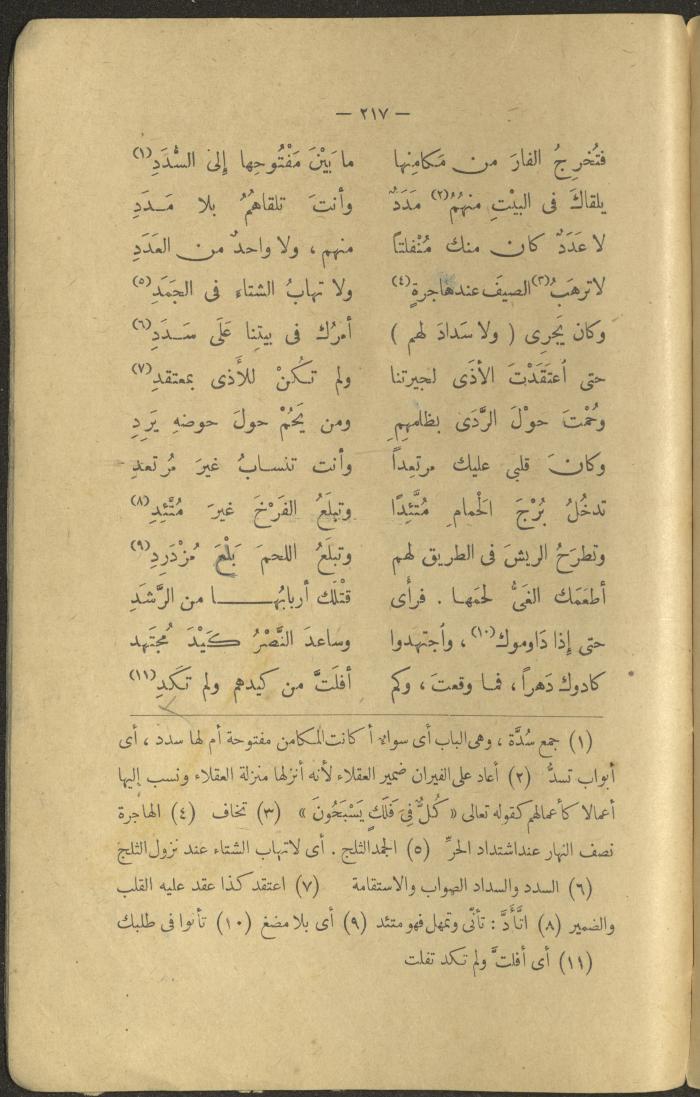 — ٢١٧ —
فتُخرِجُ الفارَ من مَكامِنِها ما بَيْنَ مَفْتُوحِها إلى السُّدَدِ(١)
يلقاكَ فى البيْتِ منهُمُ(٢) مَدَدٌ وأنتَ تلقاهُمُ بلا مَـدَدِ
لا عَدَدٌ كان منك مُنْفلتاً منهم ، ولا واحدٌ من العَدَدِ
لاترهَبُ(٣) الصيفَ عندهاجرةٍ(٤) ولا تهابُ الشتاءِ فى الجَمَدِ(٥)
وكان يَجرِى ( ولا سَدادَ لهم ) أمرُك فى بيتِنا عَلَى سَـدَدِ(٦)
حتى اُعتَقَدْتَ الأذَى لجيرتنا ولم تكُنْ للأَذى بمعتقدِ(٧)
وحُمْتَ حوْلَ الرَّدَى بظلمهِمِ ومن يَحُمْ حولَ حوضهِ يَرِدِ
وكانَ قلبى عليك مرتعِداً وأنت تنسابُ غيرَ مُرتعدِ
تدخُلُ بُرْجَ الحْمامِ مُتَّئِدًا وتبلَعُ الفَرْخَ غيرَ مُتَّئِدِ(٨)
وتطرَحُ الريشَ فى الطريق لهم وتبلَعُ اللحمَ بَلْعَ مُزْدَرِدِ(٩)
أطعَمَك الغَىُّ لحمَها . فرأى قتْلَك أربابُهـــا من الرَّشَدِ
حتى إذا دَاوموك(١٠) ، واُجتهدوا وساعدَ النَّصْرُ كَيْدَ مُجتَهِد
كادوك دَهراً ، فما وقعتَ ، وكم أفلَتَّ من كيدهم ولم تكَدِ(١١)
(١) جمع سُدَّة ، وهى الباب أى سواء أ كانت المكامن مفتوحة أم لها سدد ، أى
أبواب تسدُّ (٢) أعاد على الفيران ضمير العقلاء لأنه أنزلها منزلة العقلاء ونسب إليها
أعمالا كأعمالهم كقوله تعالى « كُلٌّ فِى فَلَكٍ يَسْبَحُونَ » (٣) تخاف (٤) الهاجرة
نصف النهار عند اشتداد الحرِّ (٥) الجمد الثلج . أى لاتهاب الشتاء عند نزول الثلج
(٦) السدد والسداد الصواب والاستقامة (٧) اعتقد كذا عقد عليه القلب
والضمير (٨) اتَّأَدَّ : تأنّى وتمهل فهو متئد (٩) أى بلا مضغ (١٠) تأنوا فى طلبك
(١١) أى أفلتَّ ولم تكد تفلت